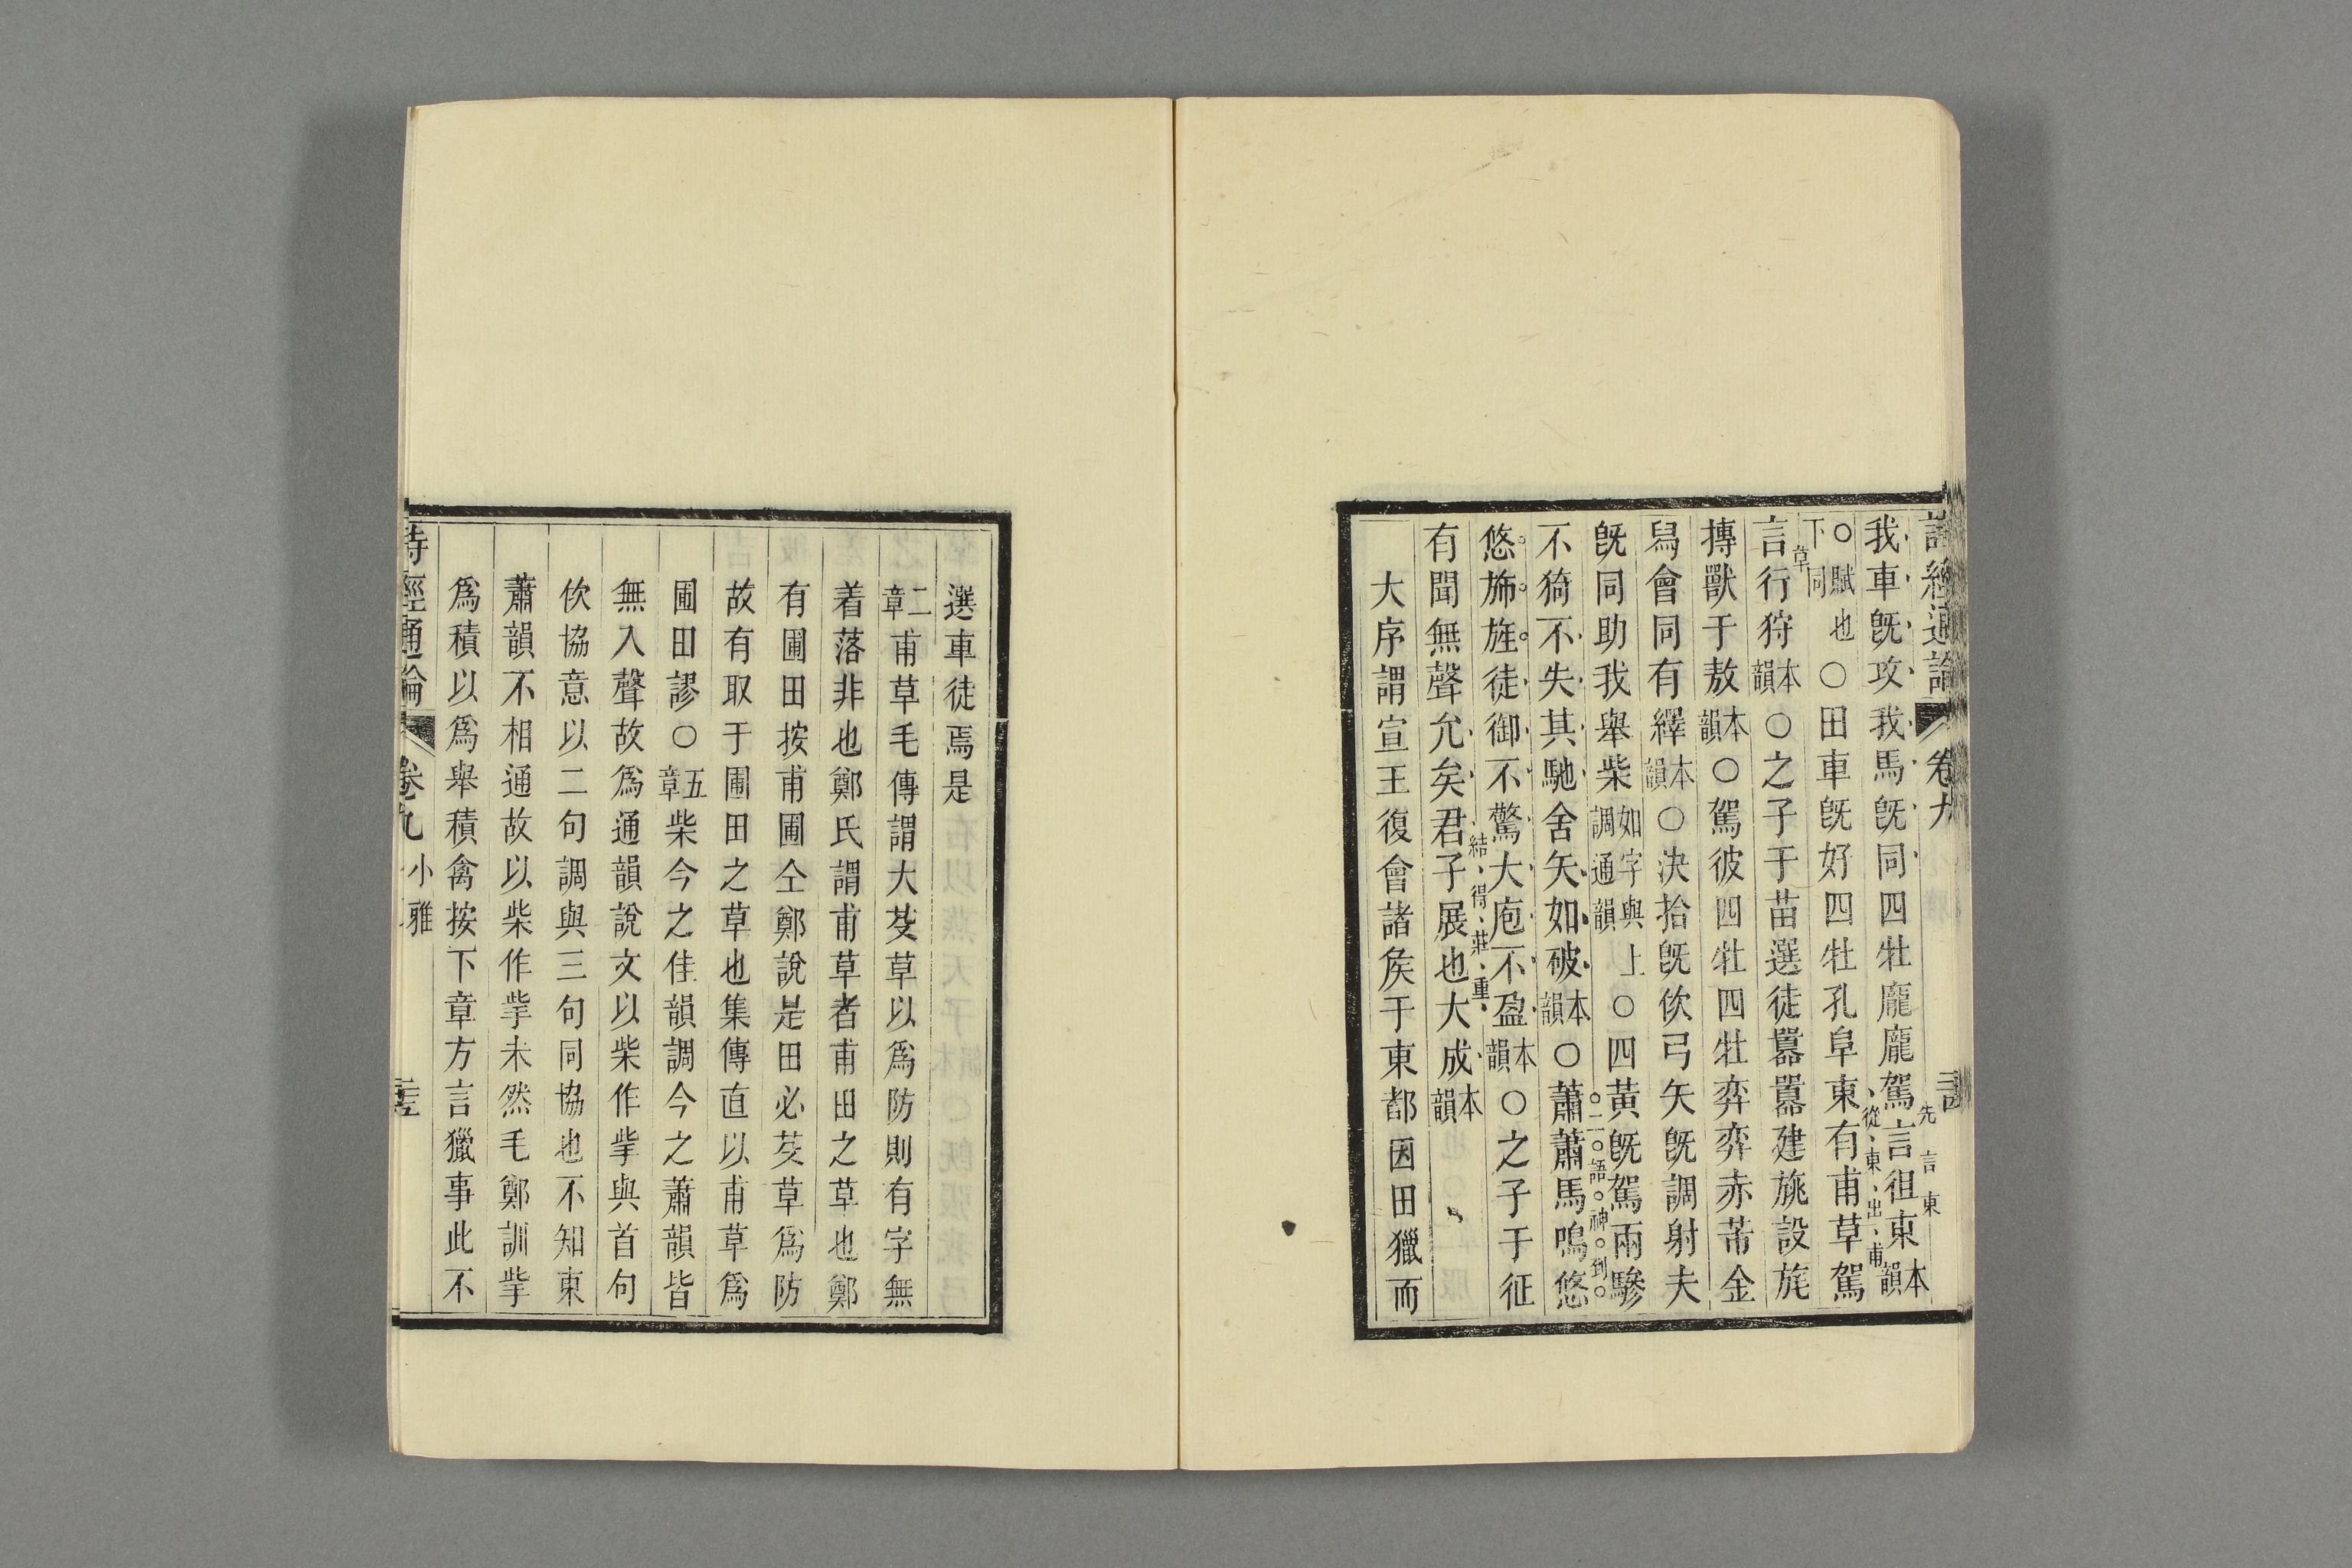 詩經通論
卷九
我車旣攻我馬旣同四牡龐龐駕言徂東本韻
先言東
○賦也下同○田車旣好四牡孔阜東有甫草駕
從東出甫草
言行狩本韻○之子于苗選徒囂囂建旐設旄
搏獸于敖本韻○駕彼四牡四牡弈弈赤芾金
舄會同有繹本韻○決拾旣佽弓矢旣調射夫
旣同助我舉柴如字與上調通韻○四黃旣駕兩驂
二語神到
不猗不失其馳舍矢如破本韻○蕭蕭馬鳴悠
悠斾旌徒御不驚大庖不盈本韻○之子于征
結得莊重
有聞無聲允矣君子展也大成本韻
大序謂宣王復會諸矦于東都因田獵而
選車徒焉是
二章甫草毛傳謂大芟草以爲防則有字無
着落非也鄭氏謂甫草者甫田之草也鄭
有圃田按甫圃仝鄭說是田必芟草爲防
故有取于圃田之草也集傳直以甫草爲
圃田謬○五章柴今之佳韻調今之蕭韻皆
無入聲故爲通韻說文以柴作㧘與首句
佽協意以二句調與三句同協也不知東
蕭韻不相通故以柴作㧘未然毛鄭訓㧘
爲積以爲舉積禽按下章方言獵事此不
詩經通論
卷九 小雅